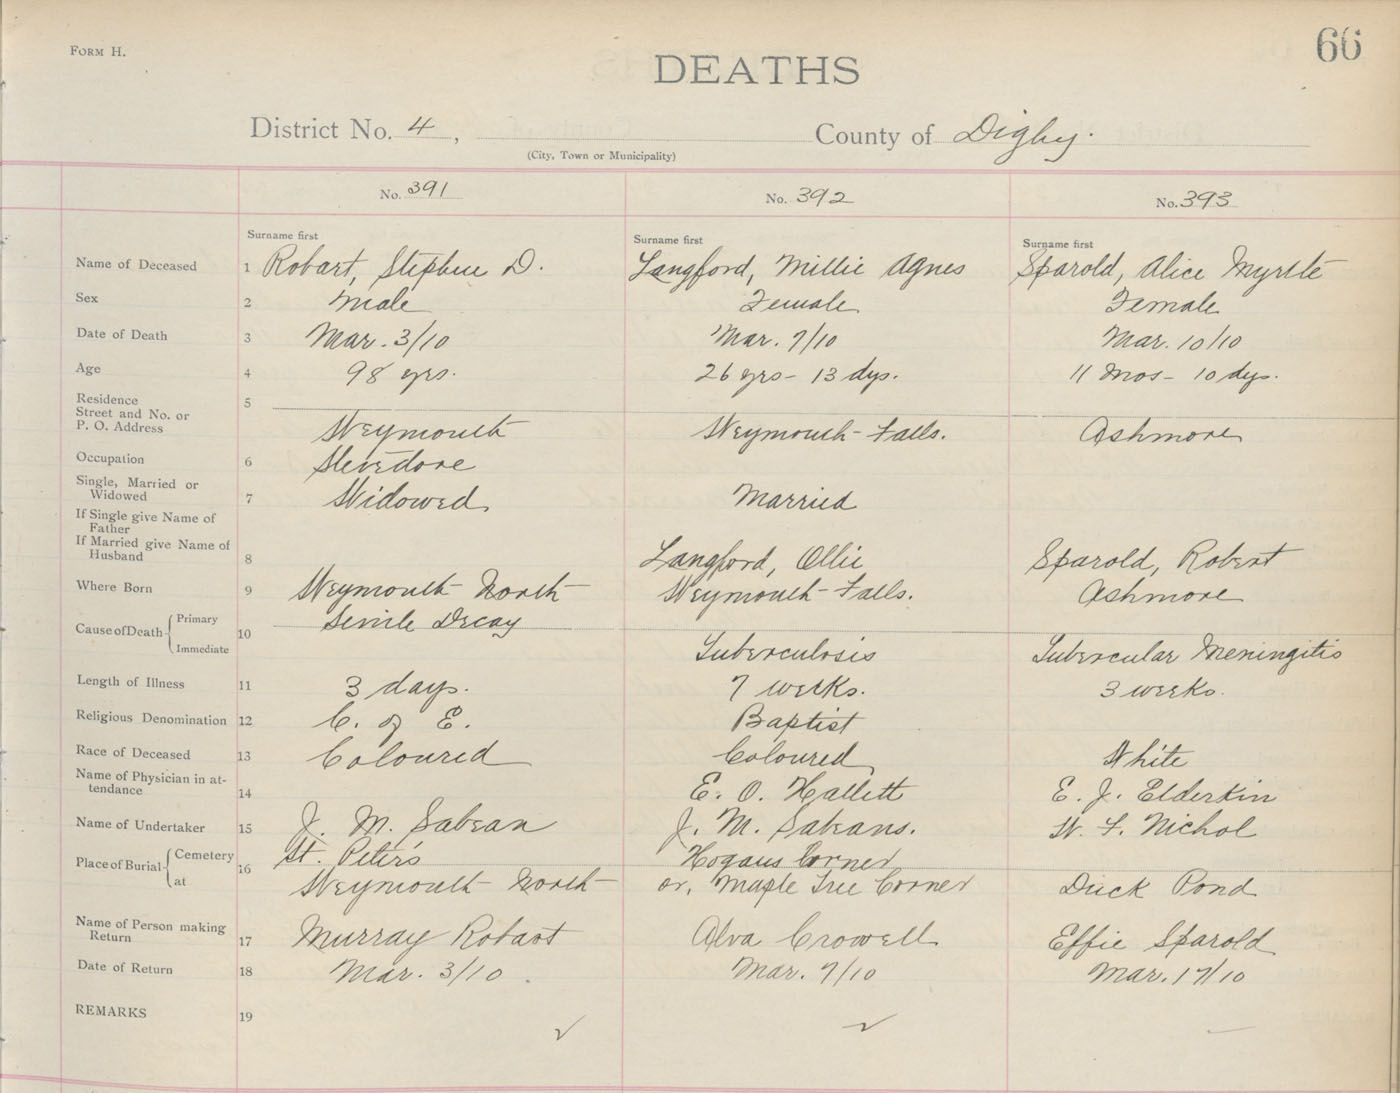 FORM H.
66
DEATHS
District No. 4, County of Digby.
(City, Town or Municipality)
No. 391 No. 392 No. 393
Surname first Surname first Surname first
Name of Deceased 1 Robart, Stephen D. Langford, Millie Agnes Sparold, Alice Myrtle
Sex 2 Male Female Female
Date of Death 3 Mar. 3/10 Mar. 7/10 Mar. 10/10
Age 4 98 yrs. 26 yrs - 13 dys. 11 mos - 10 dys.
Residence 5
Street and No. or
P. O. Address Weymouth Weymouth-Falls. Ashmore
Occupation 6 Stevedore
Single, Married or
Widowed 7 Widowed Married
If Single give Name of
Father
If Married give Name of
Husband 8 Langford, Ollie Sparold, Robert
Where Born 9 Weymouth North Weymouth-Falls. Ashmore
Cause of Death Primary 10 Senile Decay
Immediate Tuberculosis Tubercular Meningitis
Length of Illness 11 3 days. 7 weeks. 3 weeks.
Religious Denomination 12 C. of E. Baptist
Race of Deceased 13 Coloured Coloured White
Name of Physician in at-
tendance 14 E. O. Hallett E. J. Elderkin
Name of Undertaker 15 J. M. Sabean J. M. Sabeans. W. F. Nichol
Place of Burial Cemetery 16 St. Peter's Hogans Corner
at Weymouth North or, Maple Tree Corner Duck Pond
Name of Person making
Return 17 Murray Robart Alva Crowell Effie Sparold
Date of Return 18 Mar. 3/10. Mar. 7/10 Mar. 17/10
REMARKS 19